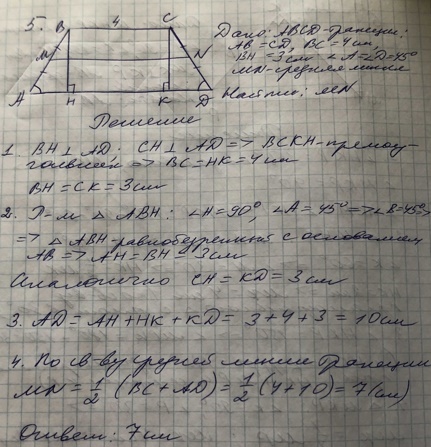 5.
B 4 C
M N
A H K D
Дано: ABCD-трапеция.
AB = CD, BC = 4 см,
BH = 3 см ∠A = ∠D = 45°
MN-средняя линия
Найти: MN
Решение
1. BH ⊥ AD; CH ⊥ AD => BCKH-прямоу-
гольник => BC = HK = 4 см
BH = CK = 3 см
2. Р-м △ ABH: ∠H = 90°, ∠A = 45° => ∠B = 45° =>
=> △ ABH-равнобедренный с основанием
AB => AH = BH = 3 см
Аналогично CH = KD = 3 см
3. AD = AH + HK + KD = 3 + 4 + 3 = 10 см
4. По св-ву средней линии трапеции
MN = 1/2 (BC + AD) = 1/2 (4 + 10) = 7 (см)
Ответ: 7 см